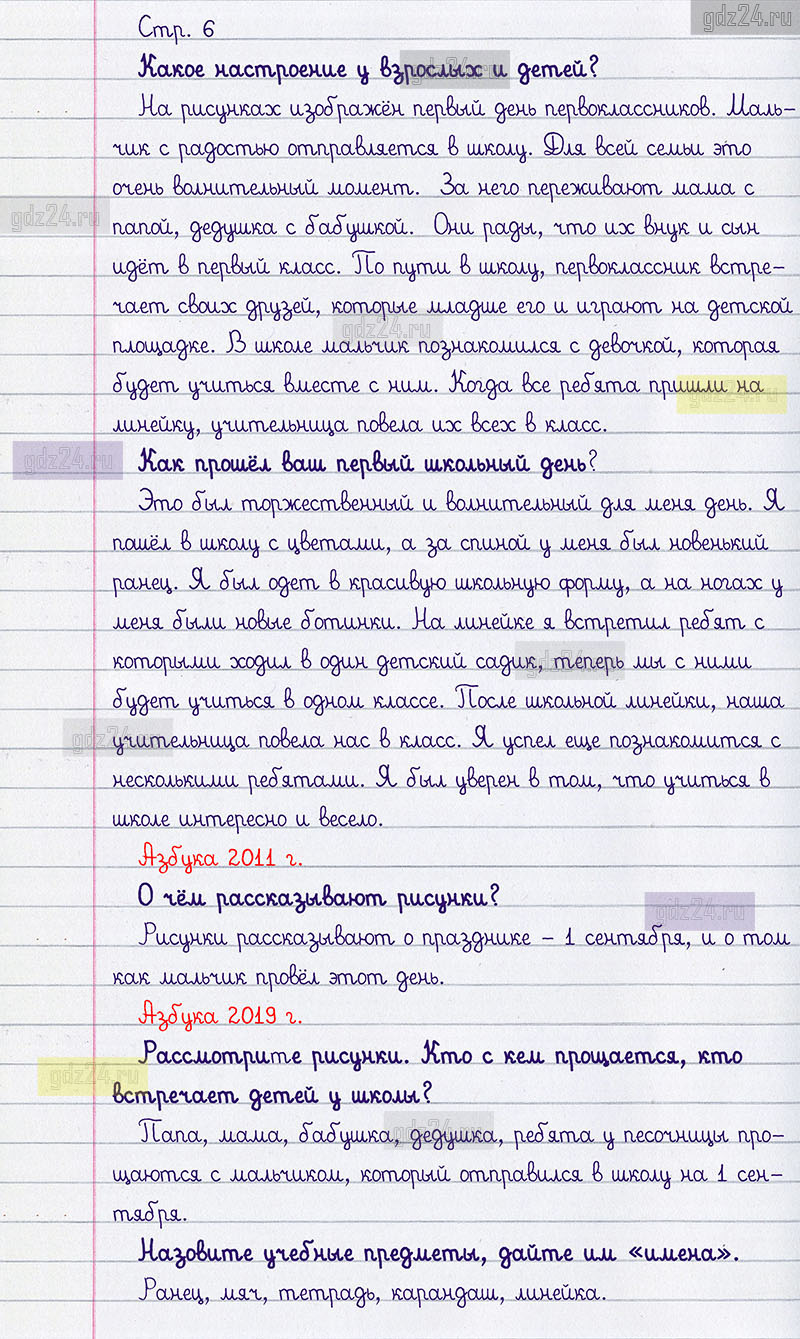 gdz24.ru
Стр. 6
Какое настроение у взрослых и детей?
На рисунках изображён первый день первоклассников. Маль-
чик с радостью отправляется в школу. Для всей семьи это
очень волнительный момент. За него переживают мама с
gdz24.ru
папой, дедушка с бабушкой. Они рады, что их внук и сын
идёт в первый класс. По пути в школу, первоклассник встре-
чает своих друзей, которые младше его и играют на детской
gdz24.ru
площадке. В школе мальчик познакомился с девочкой, которая
будет учиться вместе с ним. Когда все ребята пришли на
gdz24.ru
линейку, учительница повела их всех в класс.
gdz24.ru
Как прошёл ваш первый школьный день?
Это был торжественный и волнительный для меня день. Я
пошёл в школу с цветами, а за спиной у меня был новенький
ранец. Я был одет в красивую школьную форму, а на ногах у
меня были новые ботинки. На линейке я встретил ребят с
которыми ходил в один детский садик, теперь мы с ними
будет учиться в одном классе. После школьной линейки, наша
gdz24.ru
учительница повела нас в класс. Я успел еще познакомится с
несколькими ребятами. Я был уверен в том, что учиться в
школе интересно и весело.
Азбука 2011 г.
О чём рассказывают рисунки?
gdz24.ru
Рисунки рассказывают о празднике – 1 сентября, и о том
как мальчик провёл этот день.
Азбука 2019 г.
Рассмотрите рисунки. Кто с кем прощается, кто
gdz24.ru
встречает детей у школы?
Папа, мама, бабушка, дедушка, ребята у песочницы про-
щаются с мальчиком, который отправился в школу на 1 сен-
тября.
Назовите учебные предметы, дайте им «имена».
Ранец, мяч, тетрадь, карандаш, линейка.